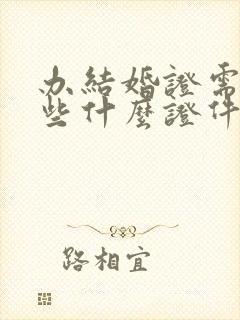 办結婚證需
些什麼證件
路相宜